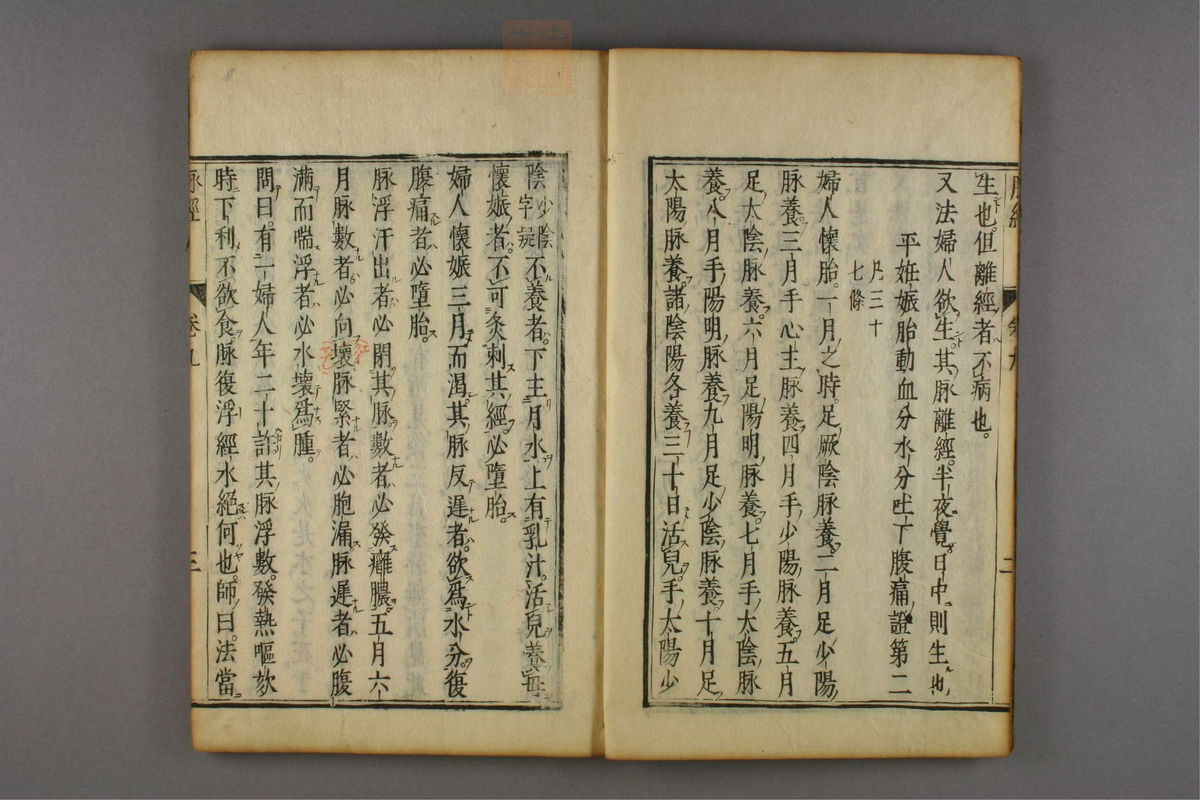 生也但離經者不病也
又法婦人欲生其脉離經半夜覺日中則生也
平妊娠胎動血分水分吐下腹痛證第二
凡三十
七條
婦人懷胎一月之時足厥陰脉養二月足少陽
脉養三月手心主脉養四月手少陽脉養五月
足太陰脉養六月足陽明脉養七月手太陰脉
養八月手陽明脉養九月足少陰脉養十月足
太陽脉養諸陰陽各養三十日活兒手太陽少
陰少陰字疑不養者下主月水上有乳汁活兒養母
懷娠者不可灸刺其經必墮胎
婦人懷娠三月而渴其脉反遲者欲爲水分復
腹痛者必墮胎
脉浮汗出者必閉其脉數者必發癰膿五月六
月脉數者必向壞脉緊者必胞漏脉遲者必腹
滿而喘浮者必水壞爲腫
問曰有一婦人年二十許其脉浮數發熱嘔欬
時下利不欲食脉復浮經水絕何也師曰法當
脉經
卷九
三